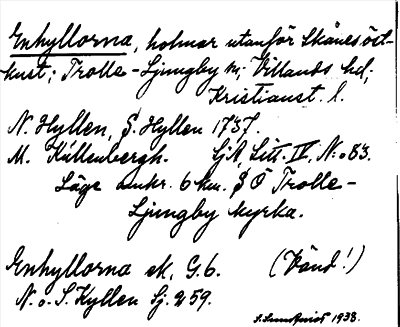 Enhyllorna, holmar utanför Skånes öst-
kust; Trolle-Ljungby sn, Villands hd,
Kristianst. l.
N. Hyllen, S. Hyllen 1737.
M. Kullenbergh. SjA, Litt. IV, N:o 83.
Läge omkr. 6 km. SÖ Trolle-
Ljungby kyrka.
Enhyllorna ek. G. 6. (Vänd!)
N. o. S. Hyllen Sj. 259.
1938.